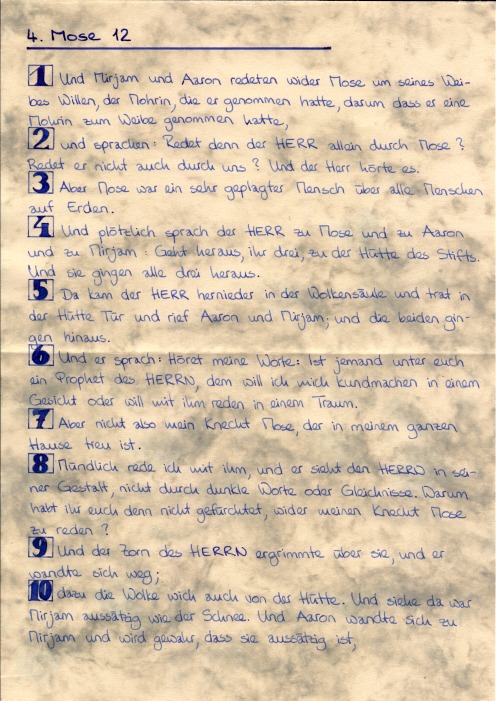 4. Mose 12
1 Und Mirjam und Aaron redeten wider Mose um seines Wei-
bes Willen, der Mohrin, die er genommen hatte, darum dass er eine
Mohrin zum Weibe genommen hatte,
2 und sprachen: Redet denn der HERR allein durch Mose?
Redet er nicht auch durch uns? Und der Herr hörte es.
3 Aber Mose war ein sehr geplagter Mensch über alle Menschen
auf Erden.
4 Und plötzlich sprach der HERR zu Mose und zu Aaron
und zu Mirjam: Geht heraus, ihr drei, zu der Hütte des Stifts.
Und sie gingen alle drei heraus.
5 Da kam der HERR hernieder in der Wolkensäule und trat in
der Hütte Tür und rief Aaron und Mirjam; und die beiden gin-
gen hinaus.
6 Und er sprach: Höret meine Worte: Ist jemand unter euch
ein Prophet des HERRN, dem will ich mich kundmachen in einem
Gesicht oder will mit ihm reden in einem Traum.
7 Aber nicht also mein Knecht Mose, der in meinem ganzen
Hause treu ist.
8 Mündlich rede ich mit ihm, und er sieht den HERRN in sei-
ner Gestalt, nicht durch dunkle Worte oder Gleichnisse. Darum
habt ihr euch denn nicht gefürchtet, wider meinen Knecht Mose
zu reden?
9 Und der Zorn des HERRN ergrimmte über sie, und er
wandte sich weg;
10 dazu die Wolke wich auch von der Hütte. Und siehe da war
Mirjam aussätzig wie der Schnee. Und Aaron wandte sich zu
Mirjam und wird gewahr, dass sie aussätzig ist,